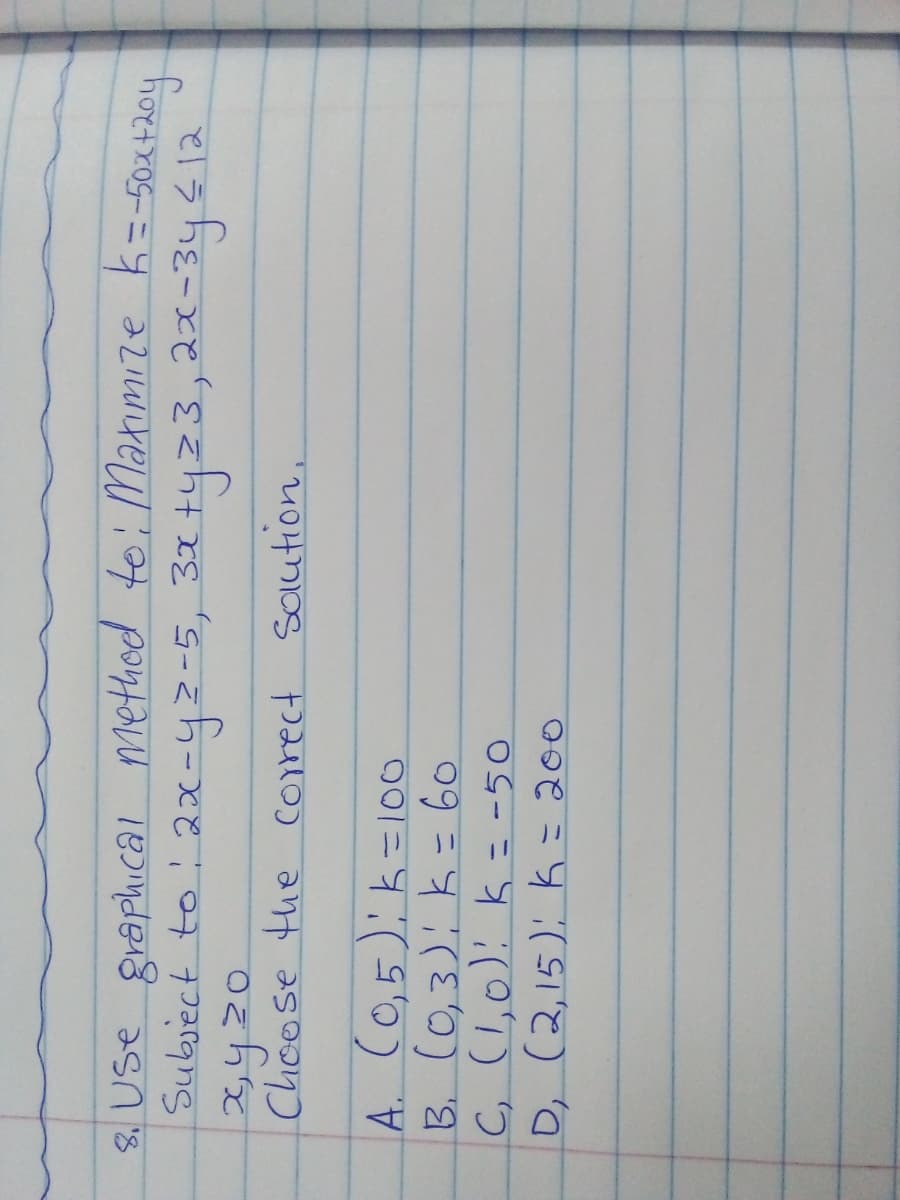 8. Use graphical method to: Maximize k=-50x+20y
Subject to: 2x-y≥-5, 3x+y≥3, 2x-3y≤12
x,y≥0
Choose the correct solution.
A. (0,5); k=100
B. (0,3); k=60
C, (1,0); k=-50
D, (2,15); k=200